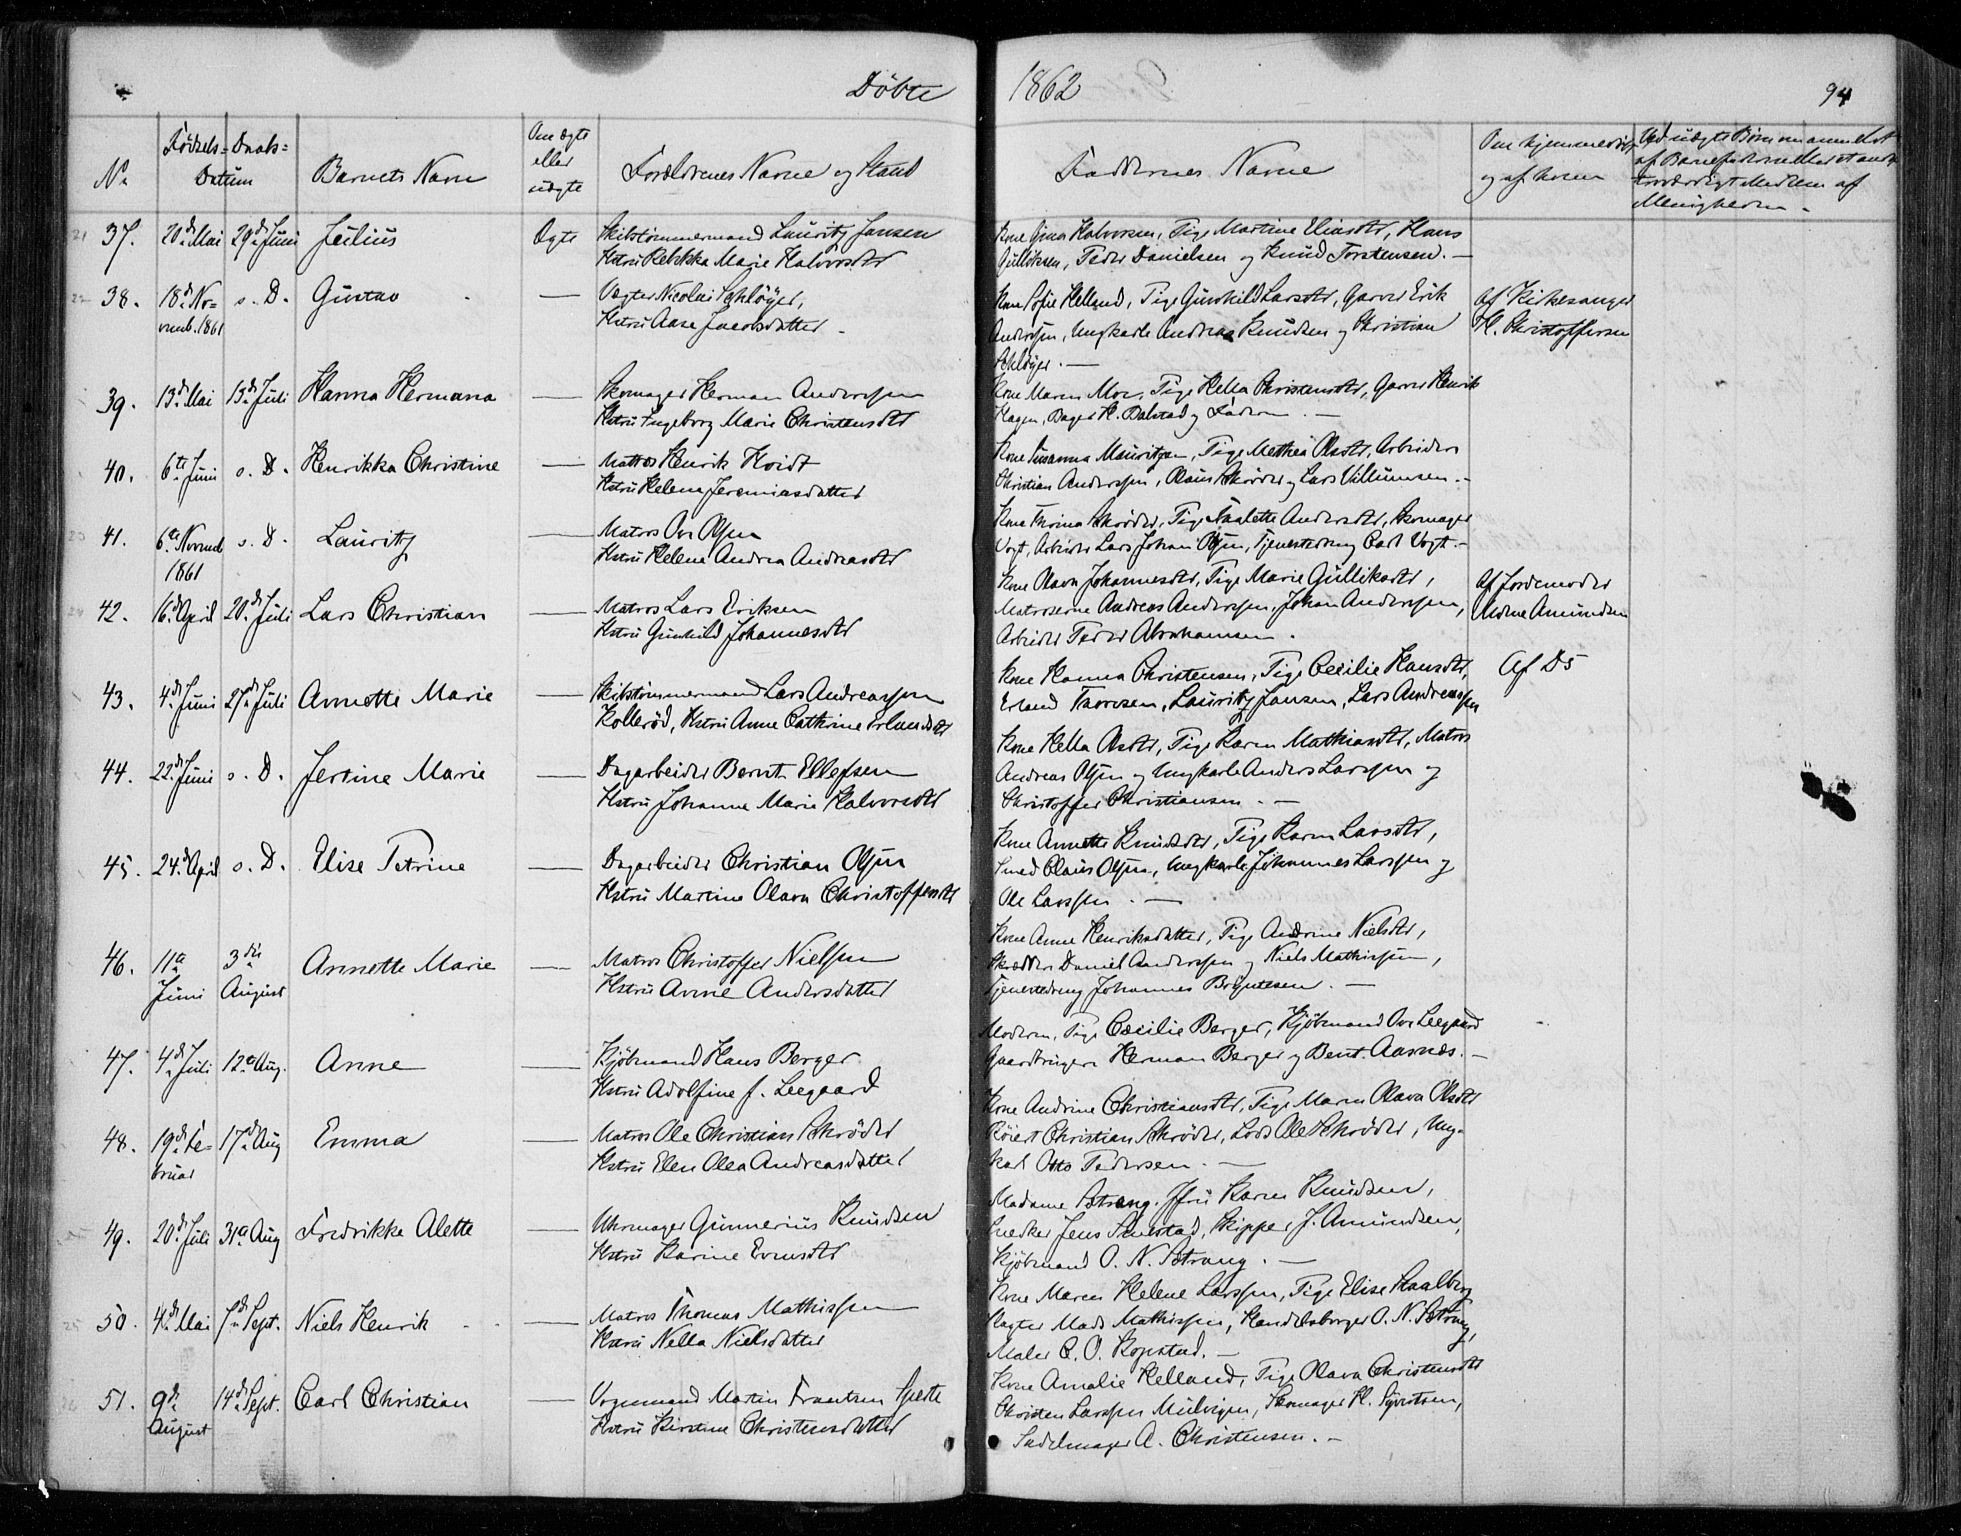 Döbte 1862 94
No
Födsels- Daabs-
Datum
Barnets Navn
Om ægte
eller
uægte
Forældrenes Navne og Stand
Faddernes Navne
Om hjemmedöbt
og af hvem
37. 20de Mai 29de Juni Julius Ægte Skibstömmermand Lauritz Jansen
Hstru Rebekka Marie Halvorsdtr
Kone Gina Halvorsen, Pige Martine Eliasdtr, Hans
Gulliksen, Peder Danielsen og Knud Torstensen. —
38. 18de No-
vemb. 1861 s. D. Gustav — Vægter Nicolai Schlöyer,
Hstru Aase Jacobsdatter.
Kone Sofie Helland, Pige Gunhild Larsdtr, Garver Erik
Anderssen, Ungkarle Andreas Knudsen og Christian
Schlöyer. —
Af Kirkesanger
H. Christoffersen
39. 13de Mai 13de Juli Hanna Hermana — Skomager Herman Anderssen
Hstru Ingeborg Marie Christensdtr
Kone Maren Moe, Pige Hella Christensdtr, Garver Henrik
Hagen, Bager H. Dalstad og Faderen. —
40. 6te Juni s. D. Henrikka Christine — Matros Henrik Hvidt
Hstru Helene Jeremiasdatter
Kone Susanna Mauritzen, Pige Mathea Olsdtr, Arbeider
Christian Anderssen, Claus Skröder og Lars Villumsen. —
41. 6te Novemb
1861 s. D. Lauritz — Matros Ove Olsen
Hstru Helene Andrea Andreasdtr
Kone Thrine Skröder, Pige Andersdtr, Skomager
Vogt, Arbeider Lars Johan Olsen, Tjenestedreng Carl Vogt. —
42. 16de April 20de Juli Lars Christian — Matros Lars Eriksen
Hstru Gunhild Johannesdtr
Kone Olava Johannesdtr, Pige Marie Gulliksdtr,
Matroserne Andreas Anderssen, Johan Anderssen,
Arbeider Peder Abrahamsen.
Af Jordemoder
Mdme Amundsen
43. 4de Juni 27de Juli Annette Marie — Skibstömmermand Lars Andreassen
Kolleröd, Hstru Anne Cathrine Erlandsdtr
Kone Hanna Christensen, Pige Cecilie Hansdtr,
Erland Thoresen, Lauritz Jansen, Lars Andreassen
Af Ds
44. 22de Juni s. D. Jertine Marie — Dagarbeider Bernt Ellefsen
Hstru Johanne Marie Halvorsdtr
Kone Hella Olsdtr, Pige Karen Mathiasdtr, Matros
Andreas Olsen og Ungkarle Anders Larssen og
Christoffer Christiansen. —
45. 24de April s. D. Elise Petrine — Dagarbeider Christian Olsen
Hstru Martine Olava Christoffersdtr
Kone Annette Knudsdtr, Pige Karen Larsdtr,
Smed Claus Olsen, Ungkarle Johannes Larssen og
Ole Larssen. —
46. 11te
Juni 3die
August Annette Marie — Matros Christoffer Nielssen
Hstru Anne Andersdatter
Kone Anne Henriksdatter, Pige Andrine Nielsdtr,
Skrædder Daniel Anderssen og Niels Mathissen,
Tjenestedreng Johannes Bryntesen. —
47. 4de Juli 12te Aug. Anne — Kjöbmand Hans Berger
Hstru Adolfine f. Leegaard
Moderen, Pige Cæcilie Berger, Kjöbmand Ove Leegaard
Gaardbruger Herman Berger og Bent Aasnæs. —
48. 19de Fe-
bruar 17de Aug Emma — Matros Ole Christian Skröder
Hstru Elen Olea Andreasdatter
Kone Andrine Christiansdtr, Pige Maren Olava Olsdtr
Röiert Christian Skröder, Lods Ole Skröder, Ung-
karl Otto Pedersen. —
49. 20de Juli 31te Aug Fredrikke Alette — Uhrmager Gunnerius Knudsen
Hstru Karine Evensdtr
Madame Strang, Jfru Karen Knudsen,
Snedker Jens Smestad, Skipper J. Amundsen,
Kjöbmand O. N. Strang. —
50. 4de Mai 7de Sept. Niels Henrik — Matros Thomas Mathissen
Hstru Nella Nielsdatter
Kone Maren Helene Larssen, Pige Elise Staalberg
Vagter Mads Mathissen, Handelsborger O. N. Strang,
Maler C. O. Kopstad. —
51. 9de
August 14de Sept. Carl Christian — Vognmand Martin Frantzen Gjerde
Hstru Kirstine Christensdatter
Kone Amalie Helland, Pige Olava Christensdtr
Christen Larssen Mulvigen, Skomager H. Syvertsen,
Sadelmager A. Christensen. —